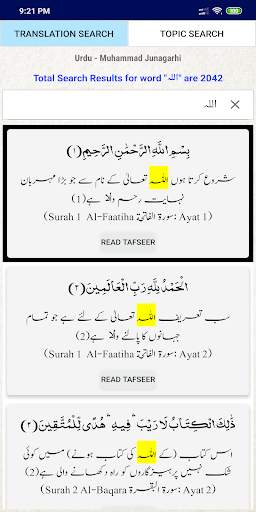 9:21 PM
TRANSLATION SEARCH
TOPIC SEARCH
Urdu - Muhammad Junagarhi
Total Search Results for word "اللہ" are 2042
اللہ
بِسْمِ اللَّهِ الرَّحْمَٰنِ الرَّحِيمِ ﴿١﴾
شروع کرتا ہوں اللہ تعالیٰ کے نام سے جو بڑا مہربان
نہایت رحم والا ہے(1)
(Surah 1 Al-Faatiha سورة الفاتحة: Ayat 1)
READ TAFSEER
الْحَمْدُ لِلَّهِ رَبِّ الْعَالَمِينَ ﴿٢﴾
سب تعریف اللہ تعالیٰ کے لئے ہے جو تمام
جہانوں کا پالنے والا ہے(2)
(Surah 1 Al-Faatiha سورة الفاتحة: Ayat 2)
READ TAFSEER
ذَٰلِكَ الْكِتَابُ لَا رَيْبَ ۛ فِيهِ ۛ هُدًى لِلْمُتَّقِينَ ﴿٢﴾
اس کتاب (کے اللہ کی کتاب ہونے) میں کوئی
شک نہیں پرہیزگاروں کو راه دکھانے والی ہے(2)
(Surah 2 Al-Baqara سورة البقرة: Ayat 2)